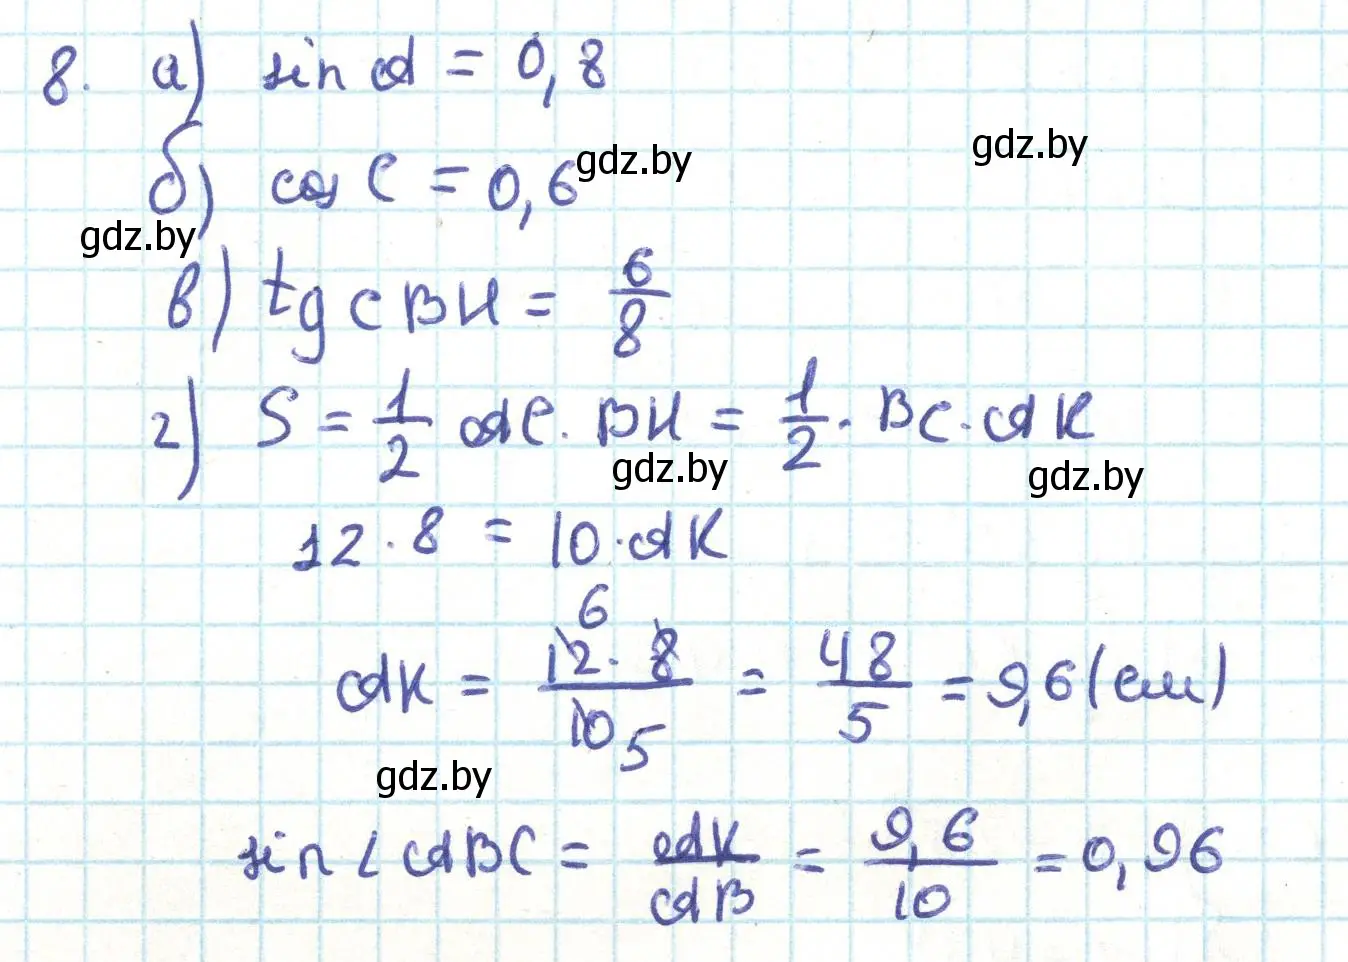 8. а) sin A = 0,8
б) cos C = 0,6
gdz.by
gdz.by
gdz.by
в) tg CBH = 6/8
г) S = 1/2 AC · BH = 1/2 · BC · AK
gdz.by
gdz.by
12 · 8 = 10 · AK
6
AK = 12 · 8 / 10 5 = 48/5 = 9,6 (см)
gdz.by
sin ∠ ABC = AK/AB = 9,6/10 = 0,96